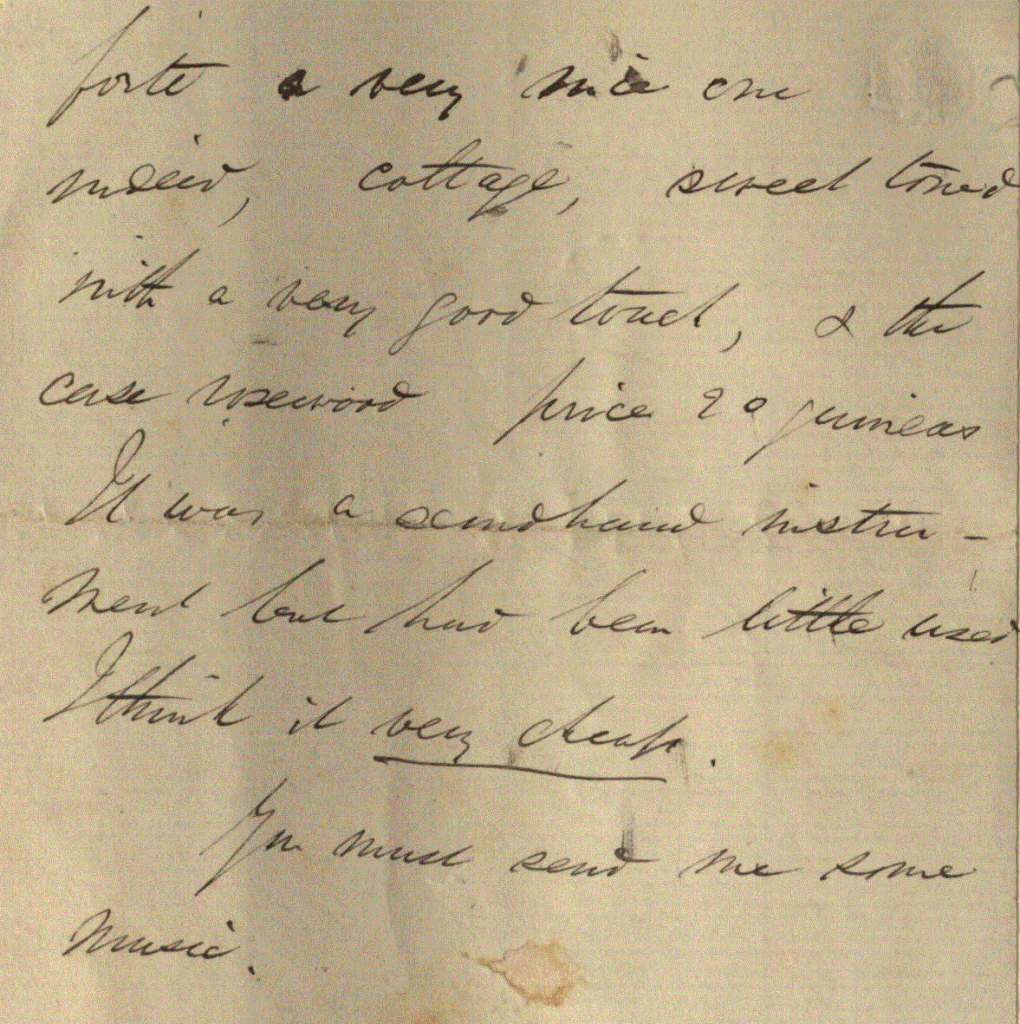 forte a very nice one
indeed, cottage, sweet toned
with a very good touch, & the
case rosewood price 20 guineas
It was a secondhand instru-
ment but had been little used
I think it very cheap.
You must send me some
music.